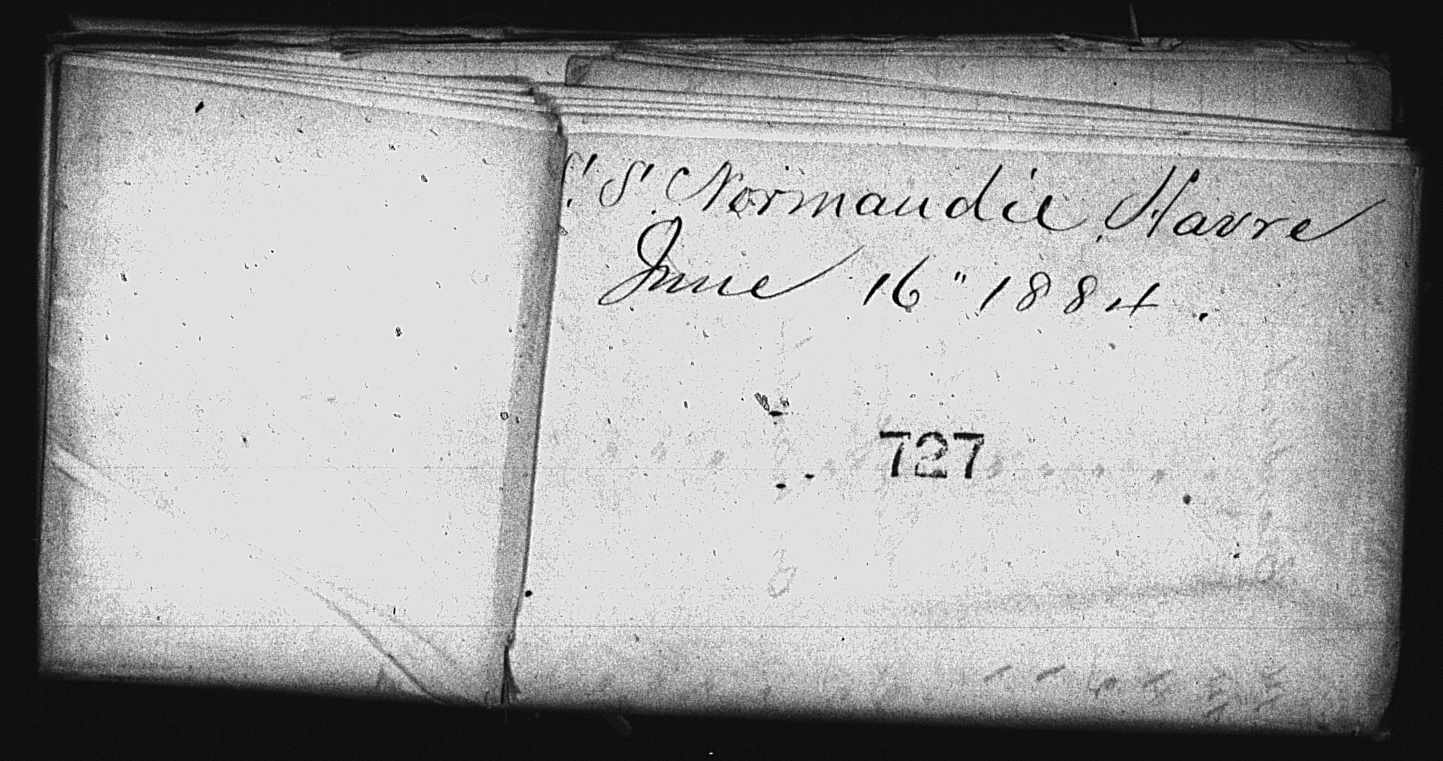 S.S. Normandie, Havre
June 16" 1884.
727